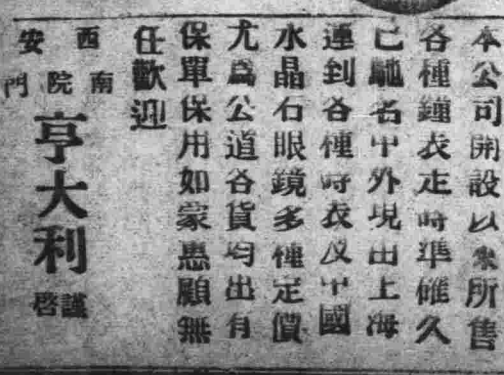 本公司開設以來所售
各種鐘表走時準確久
已馳名中外現由上海
運到各種時表及中國
水晶石眼鏡多種定價
尤爲公道各貨均出有
保單保用如蒙惠顧無
任歡迎
西安
南院門
亨大利
謹啓